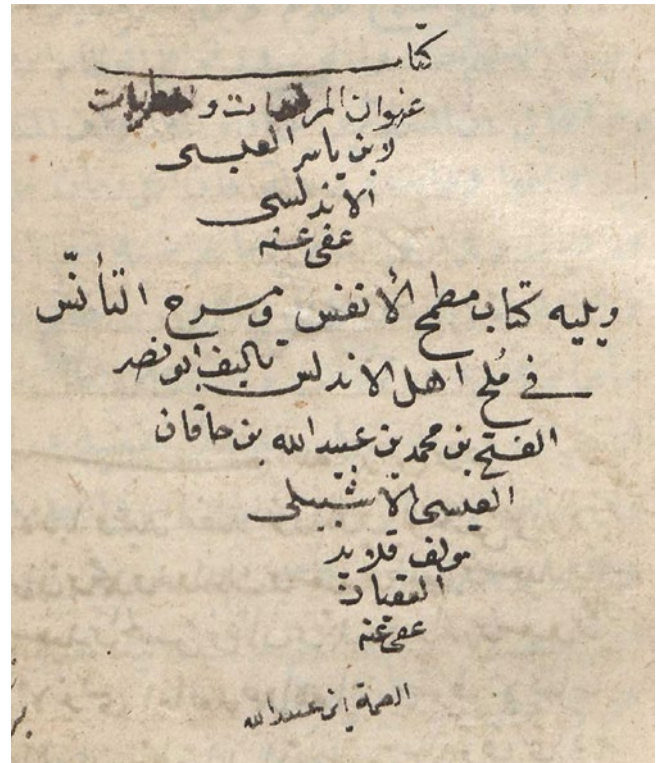 كتاب
عنوان المرقصات والمطربات
لابن ياسر العبسى
الاندلسى
عفى عنه
ويليه كتاب مطمح الأنفس ومسرح التأنّس
فى مُلح اهل الاندلس تاليف ابو نصر
الفتح بن محمد بن عبيد الله بن خاقان
القيسى الاشبيلى
مولف قلايد
العقيان
عفى عنه
عبد الله